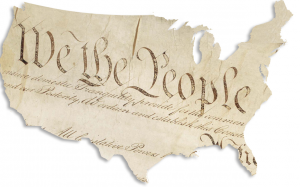 We the People
insure domestic Tranquility, provide for the common
our Posterity, do ordain and establish this Const
All legislative Powers